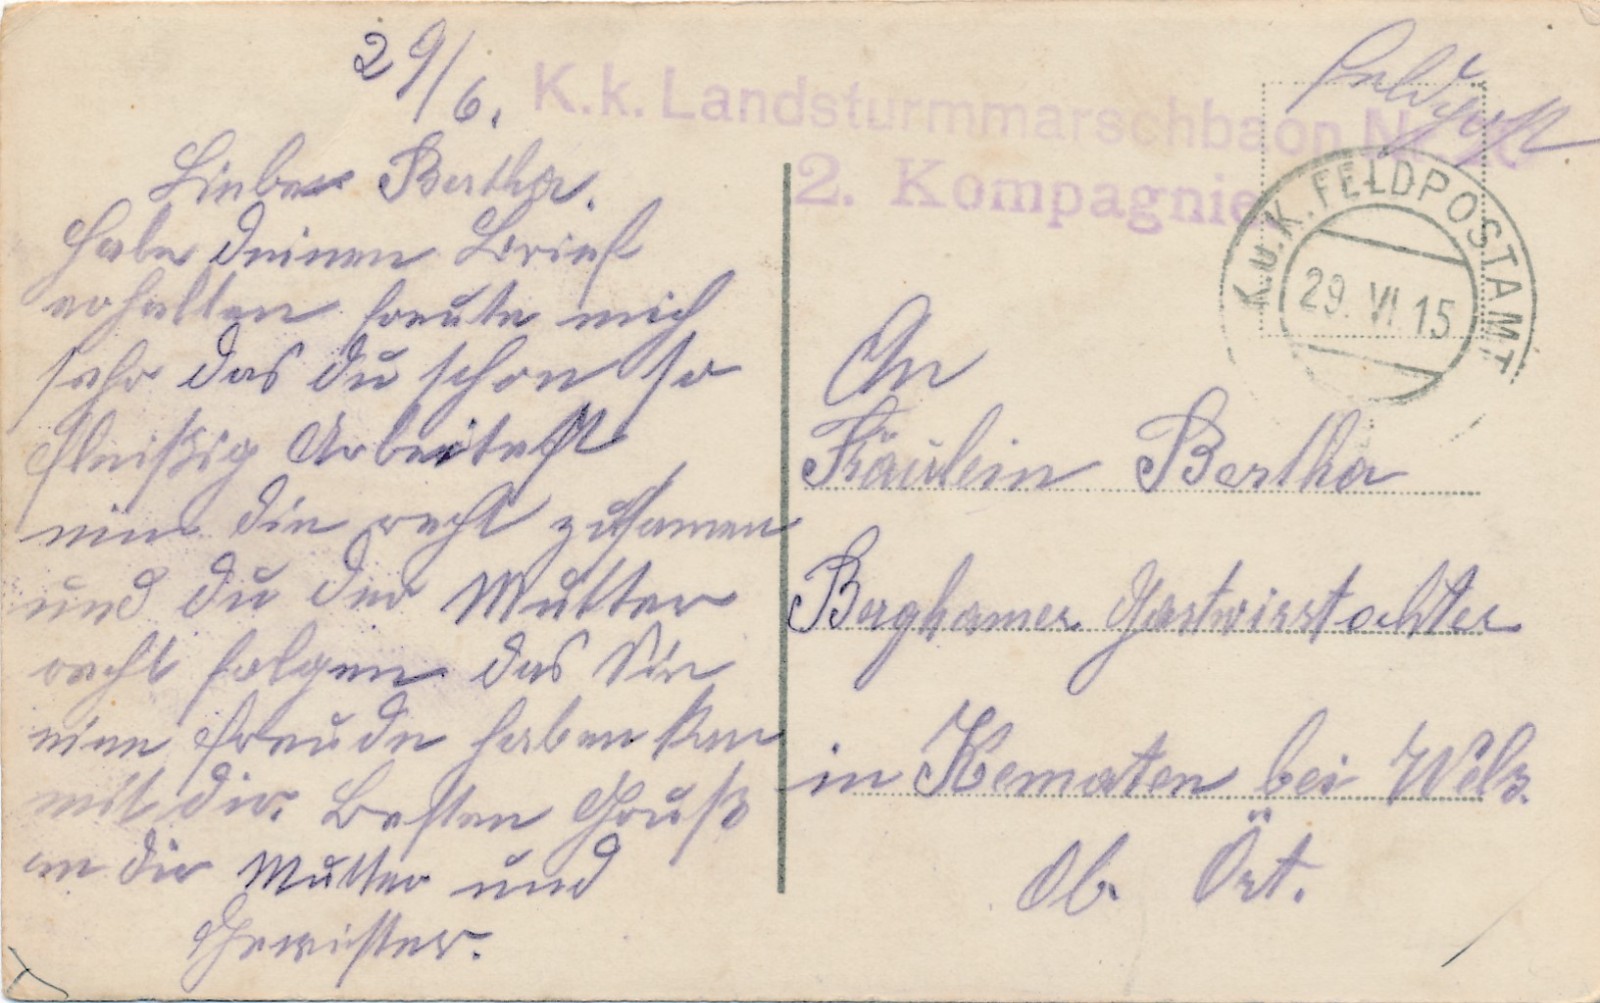 29/6.
Liebe Bertha.
Habe deinen Brief
erhalten freute mich
sehr das du schon so
fleißig Arbeitest
nim die recht zusamen
und du der Mutter
recht folgen das Sie
eine Freude haben kan
mit dir. Besten Gruß
an die Mutter und
Gewister.
Feldpost.
K.k. Landsturmmarschbaon N
2. Kompagnie
K.U.K. FELDPOSTAMT
29. VI. 15
An
Fräulein Bertha
Berghamer Gastwirstochter
in Kematen bei Wels.
Ob. Öst.